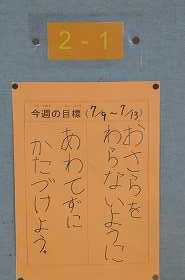 2-1
今週の目標 (7/9～7/13)
おさらを
わらないように
あわてずに
かたづけよう。